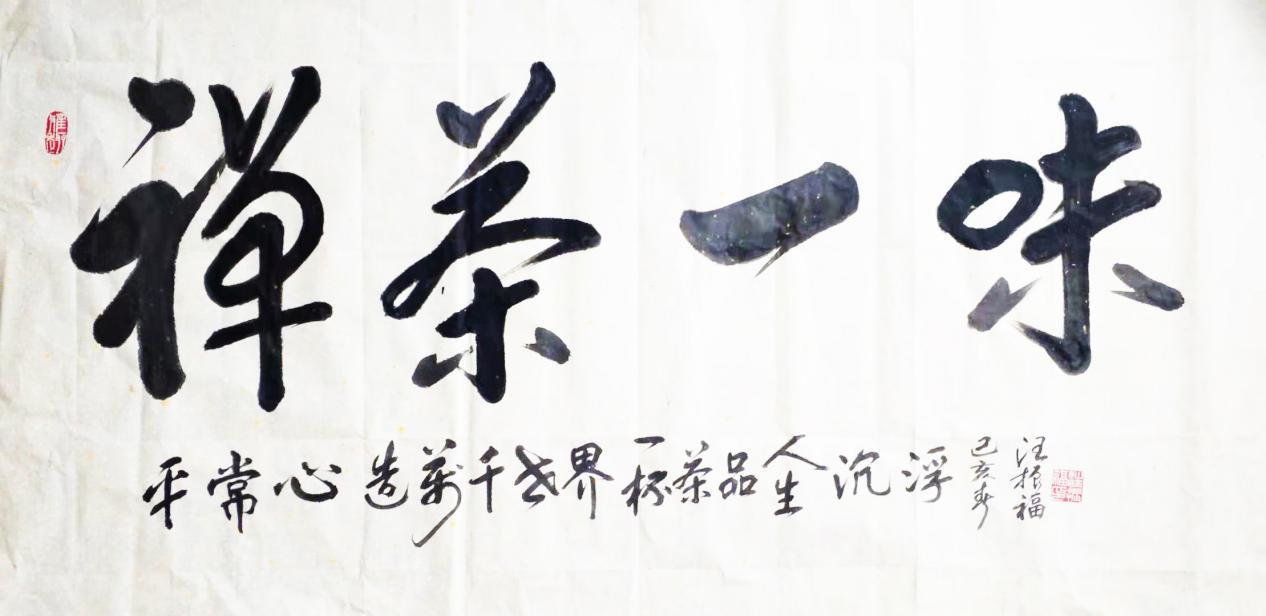 禅茶一味
平常心造萬千世界一杯茶品人生沉浮
己亥
汪振福